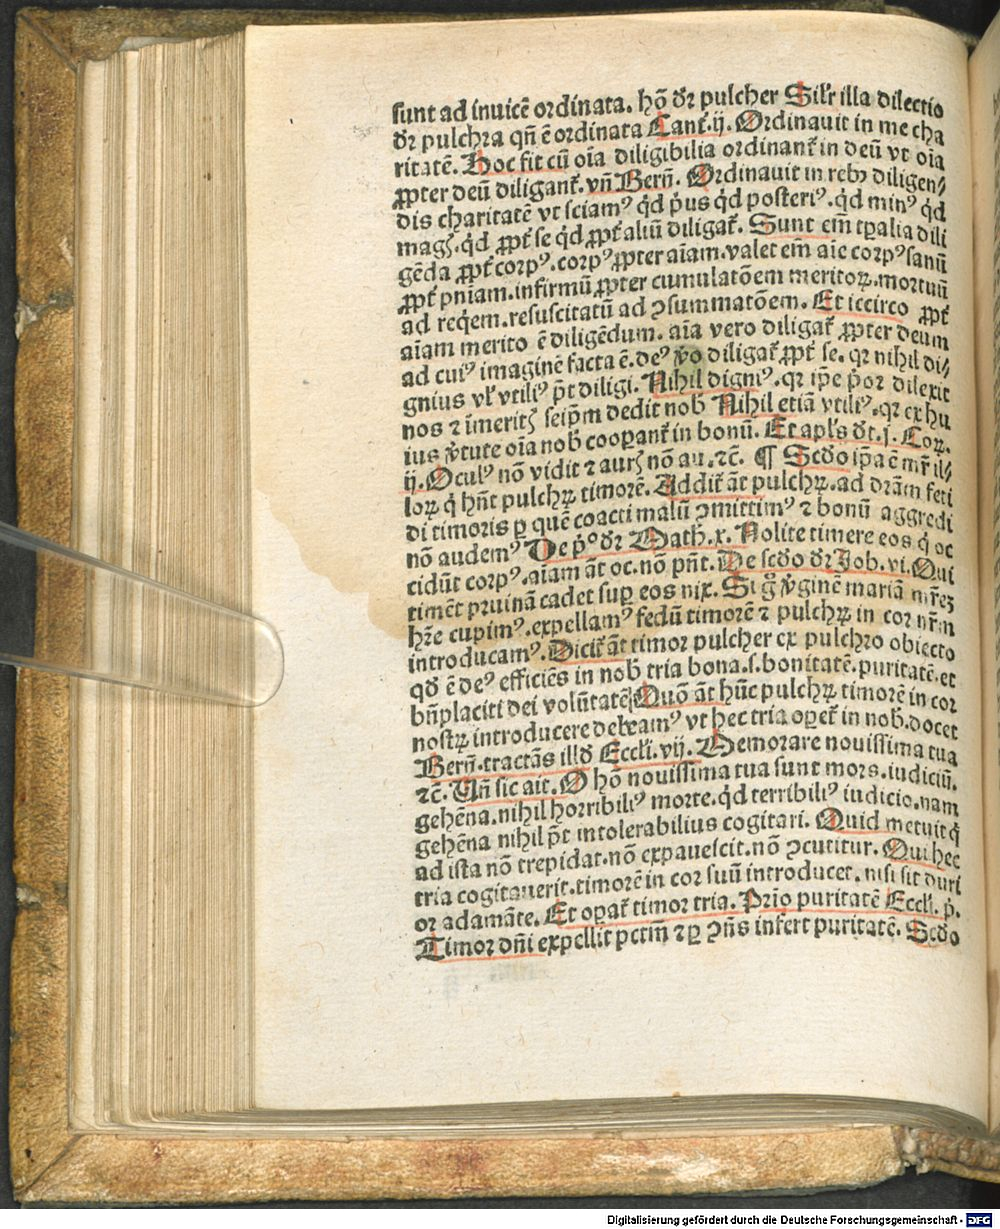 sunt ad inuicē ordinata. hō dr̄ pulcher Silr̄ illa dilectio
dr̄ pulchra qn̄ ē ordinata Cant̄.ij. Ordinauit in me cha
ritatē. Hoc fit cū oīa diligibilia ordinant̄ in deū vt oīa
ꝓpter deū diligant̄. vn̄ Bern̄. Ordinauit in rebꝫ diligen⸗
dis charitatē vt sciamꝰ qd̄ p̄us qd̄ posteriꝰ. qd̄ minꝰ qd̄
magꝭ. qd̄ ꝓpt̄ se qd̄ ꝓpt̄ aliū diligat̄. Sunt em̄ tꝑalia dili
gēda ꝓpt̄ corpꝰ. corpꝰ ꝓpter aīam. valet em̄ aīe corpꝰ sanū
ꝓpt̄ pn̄iam. infirmū ꝓpter cumulatōem meritoꝝ. mortuū
ad reqͥem. resuscitatū ad ꝯsummatōem. Et iccirco ꝓpt̄
aīam merito ē diligēdum. aīa vero diligat̄ ꝓpter deum
ad cuiꝰ imaginē facta ē. deꝰ v̄o diligat̄ ꝓpt̄ se. qꝛ nihil di⸗
gnius vl̄ vtiliꝰ p̄t diligi. Nihil digniꝰ. qꝛ ip̄e p̄or dilexit
nos ⁊ īmeritꝭ seip̄m dedit nob̄ Nihil etiā vtiliꝰ. qꝛ ex hu
ius v̄tute oīa nob̄ cooꝑant̄ in bonū. Et apl̄s dt̄.j. Coꝝ.
ij. Oculꝰ nō vidit ⁊ aurꝭ nō au.⁊c̄. ¶ Scd̄o ip̄a ē mr̄ il⸗
loꝝ qͥ hn̄t pulchꝝ timorē. Addit̄ āt pulchꝝ. ad dr̄am feti
di timoris ꝑ quē coacti malū ꝯmittimꝰ ⁊ bonū aggredi
nō audemꝰ De p̄ͦ dr̄ Math̄.x. Nolite timere eos qͥ oc
cidūt corpꝰ. aīam āt oc. nō pn̄t. De scd̄o dr̄ Job.vi. Qui
timēt pruinā cadet suꝑ eos nix. Si gͦ v̄ginē mariā mr̄eꝫ
hr̄e cupimꝰ. expellamꝰ fedū timorē ⁊ pulchꝝ in cor nr̄m
introducamꝰ. Dicit̄ āt timor pulcher ex pulchro obiecto
qd̄ ē deꝰ efficiēs in nob̄ tria bona. s. bonitatē. puritatē. et
bn̄placiti dei volūtatē Quō āt hūc pulchꝝ timorē in cor
nostꝝ introducere debeamꝰ vt hec tria oꝑet̄ in nob̄. docet
Bern̄. tractās illd̄ Eccli.vij. Memorare nouissima tua
⁊c̄. Vn̄ sic ait. O hō nouissima tua sunt mors. iudiciū.
gehēna. nihil horribiliꝰ morte. qd̄ terribiliꝰ iudicio. nam
gehēna nihil p̄t intolerabilius cogitari. Quid metuit qͥ
ad ista nō trepidat. nō expauescit. nō ꝯcutitur. Qui hec
tria cogitauerit. timorē in cor suū introducet. nisi sit duri
or adamāte. Et oꝑat̄ timor tria. Prīo puritatē Eccli. p̄.
Timor dn̄i expellit pctm̄ ⁊ ꝑ ꝯn̄s infert puritatē. Scd̄o
Digitalisierung gefördert durch die Deutsche Forschungsgemeinschaft - DFG